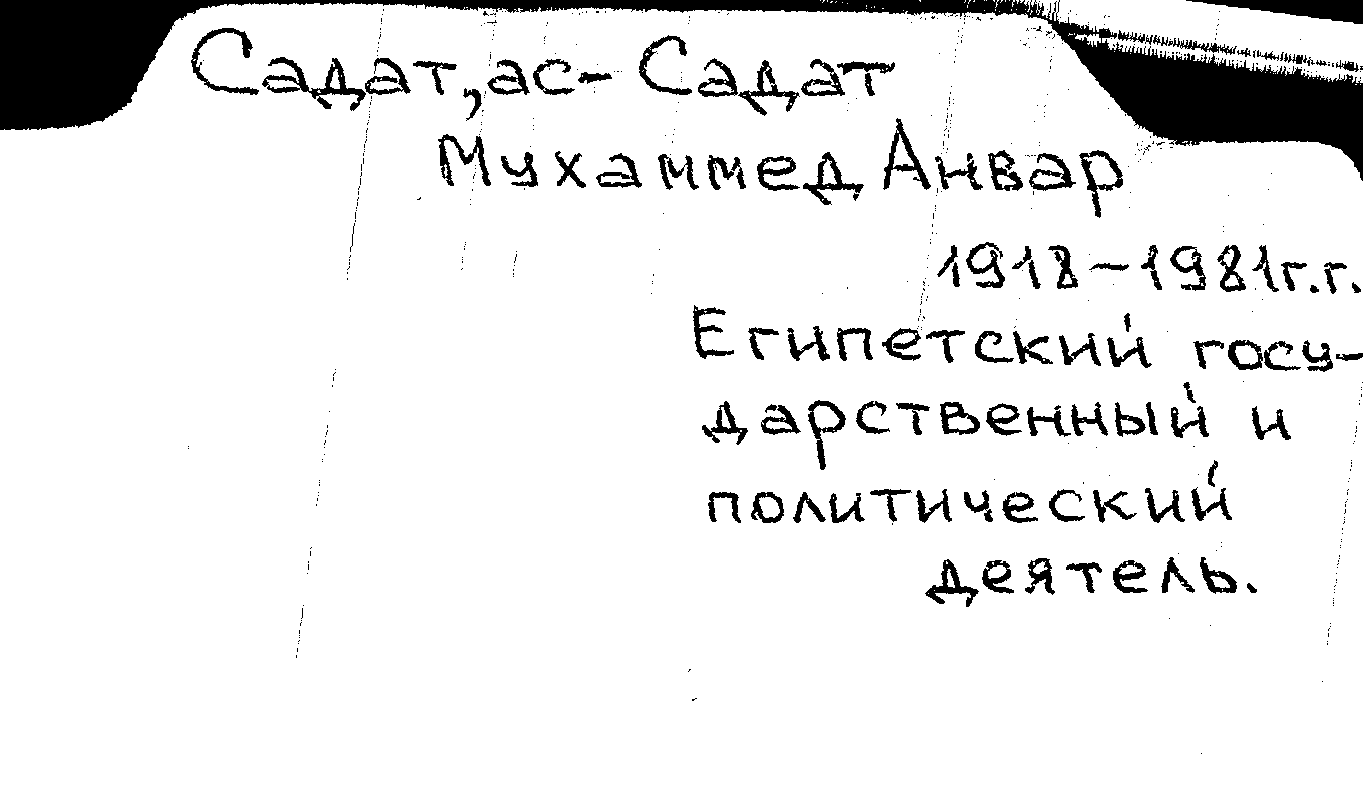 Садат, ас- Садат
Мухаммед Анвар
1918-1981г.г.
Египетский госу-
дарственный и
политический
деятель.